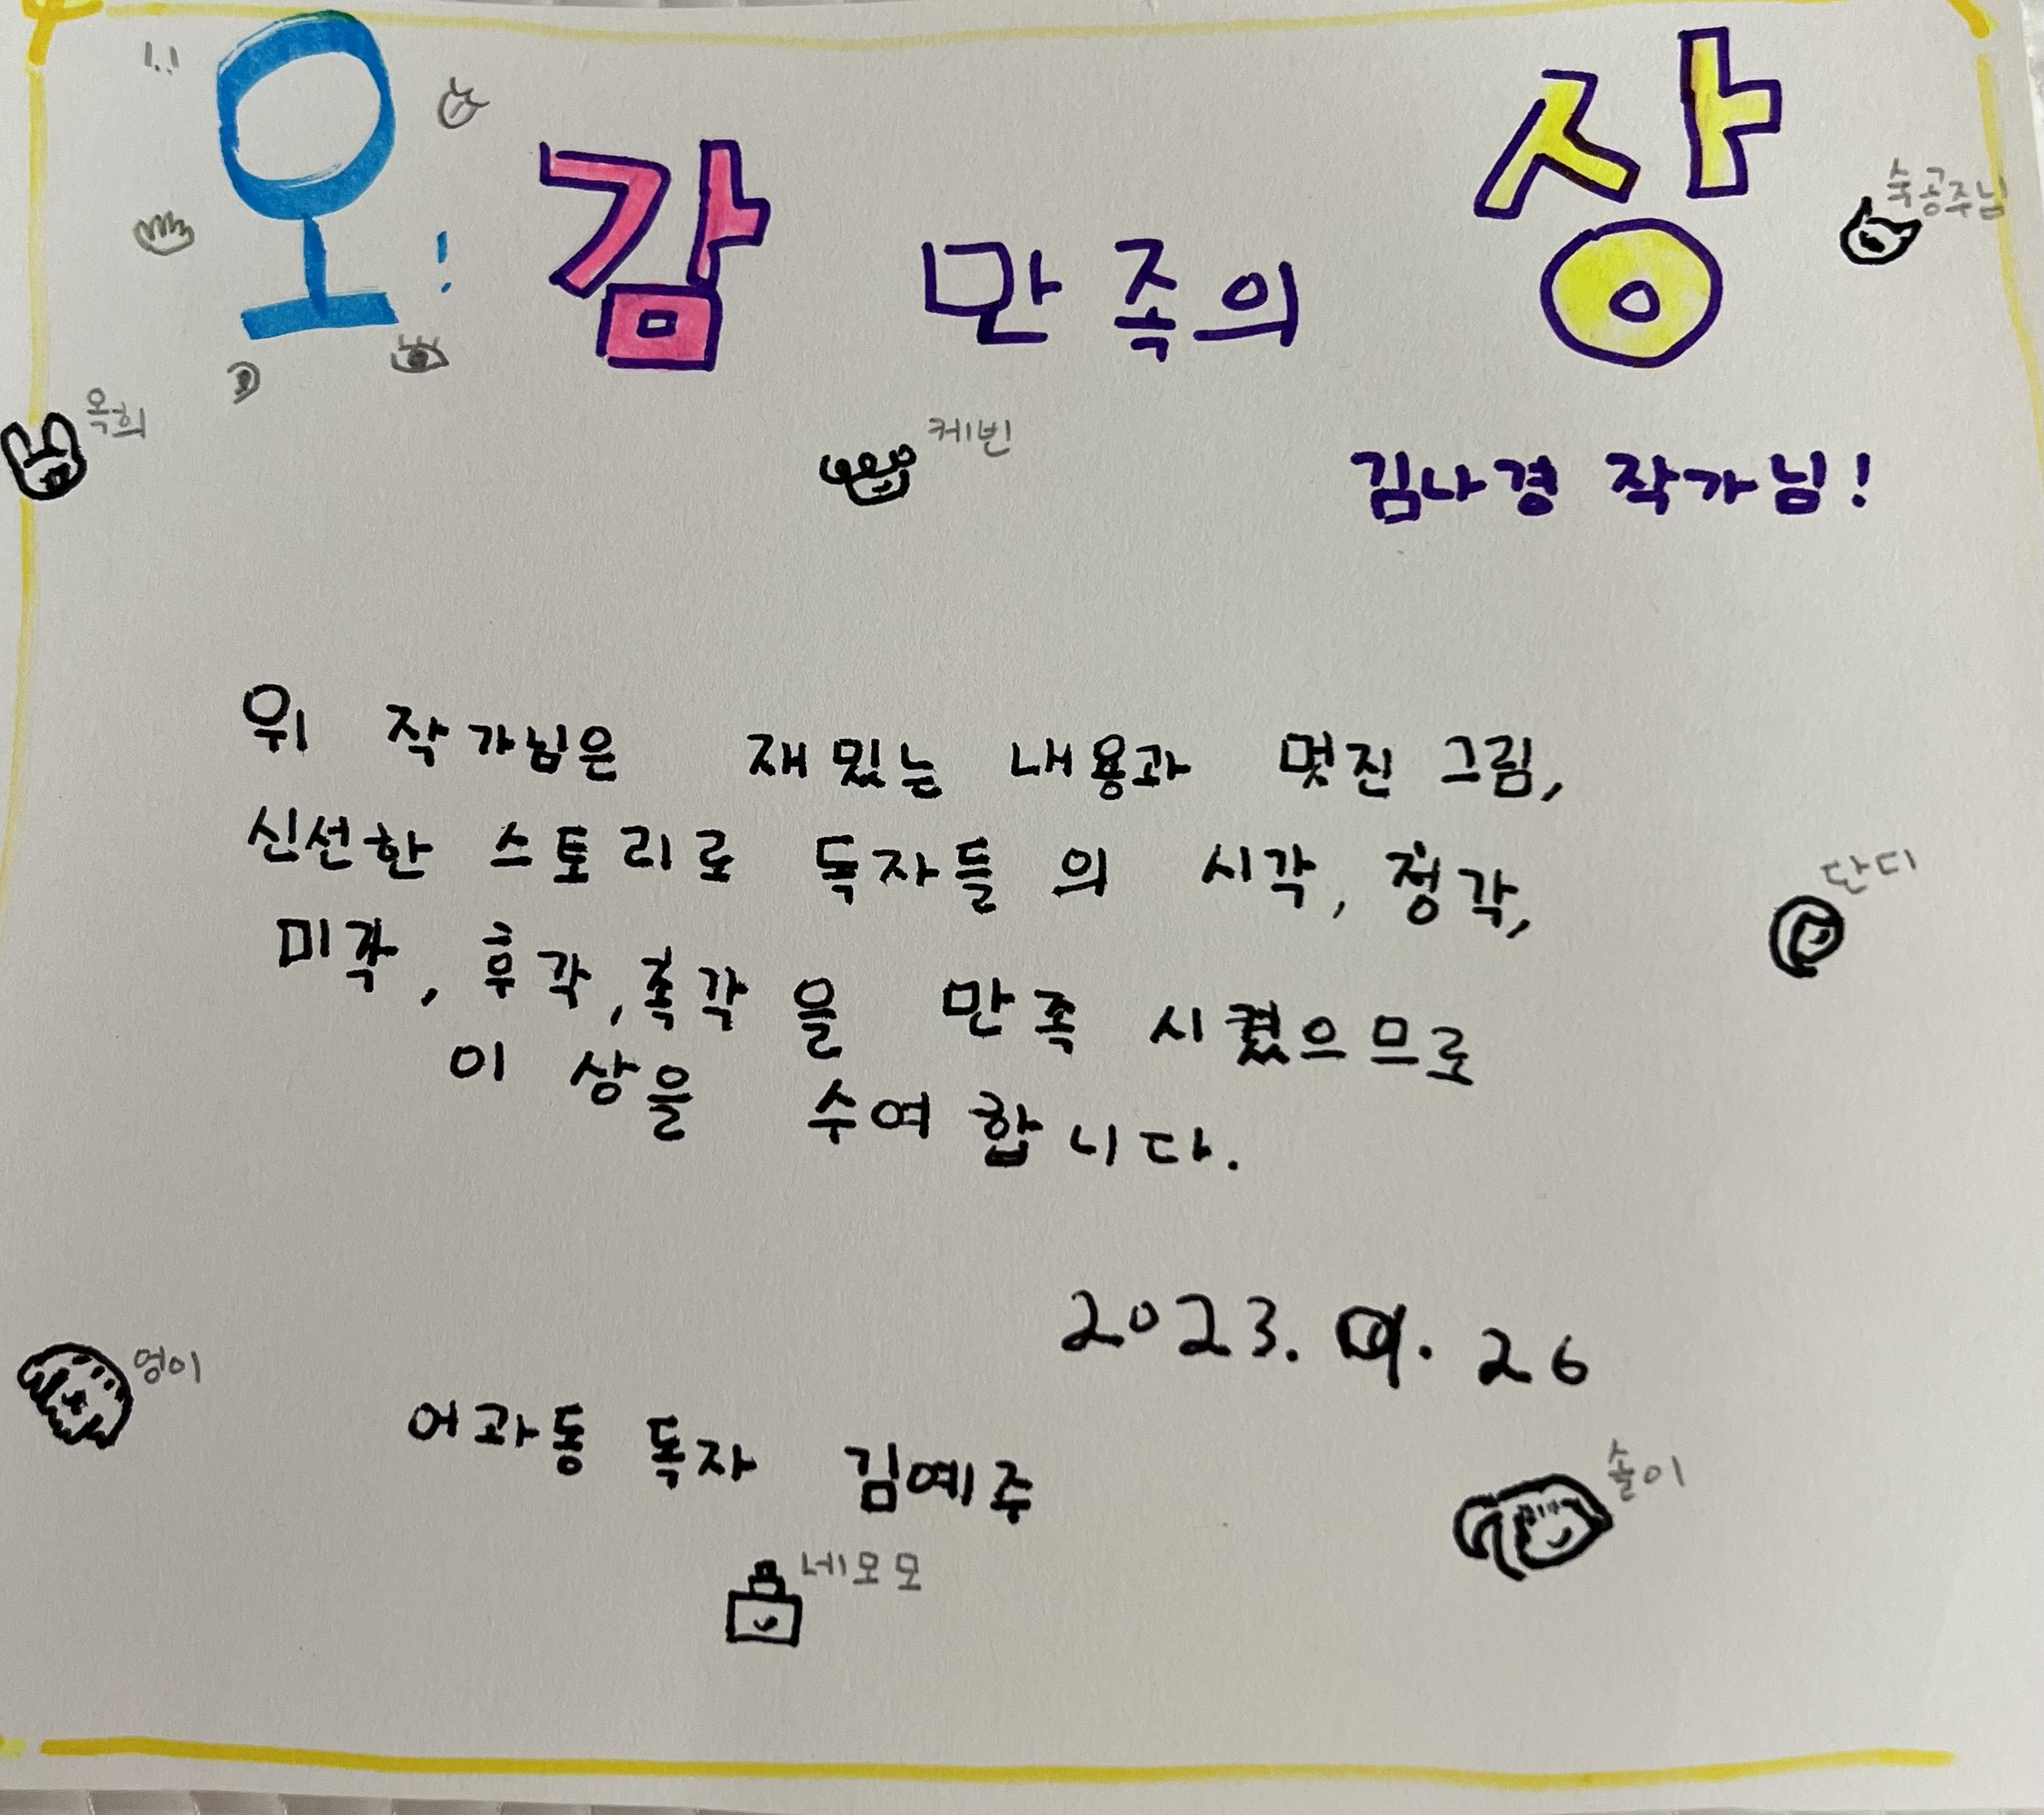 오! 감 만족의 상
숙공주님
옥희
케빈
김나경 작가님!
위 작가님은 재밌는 내용과 멋진 그림,
신선한 스토리로 독자들의 시각, 청각,
미각, 후각, 촉각을 만족 시켰으므로
단디
이 상을 수여합니다.
2023. 9. 26
엉이
어과동 독자 김예주
솔이
네모모